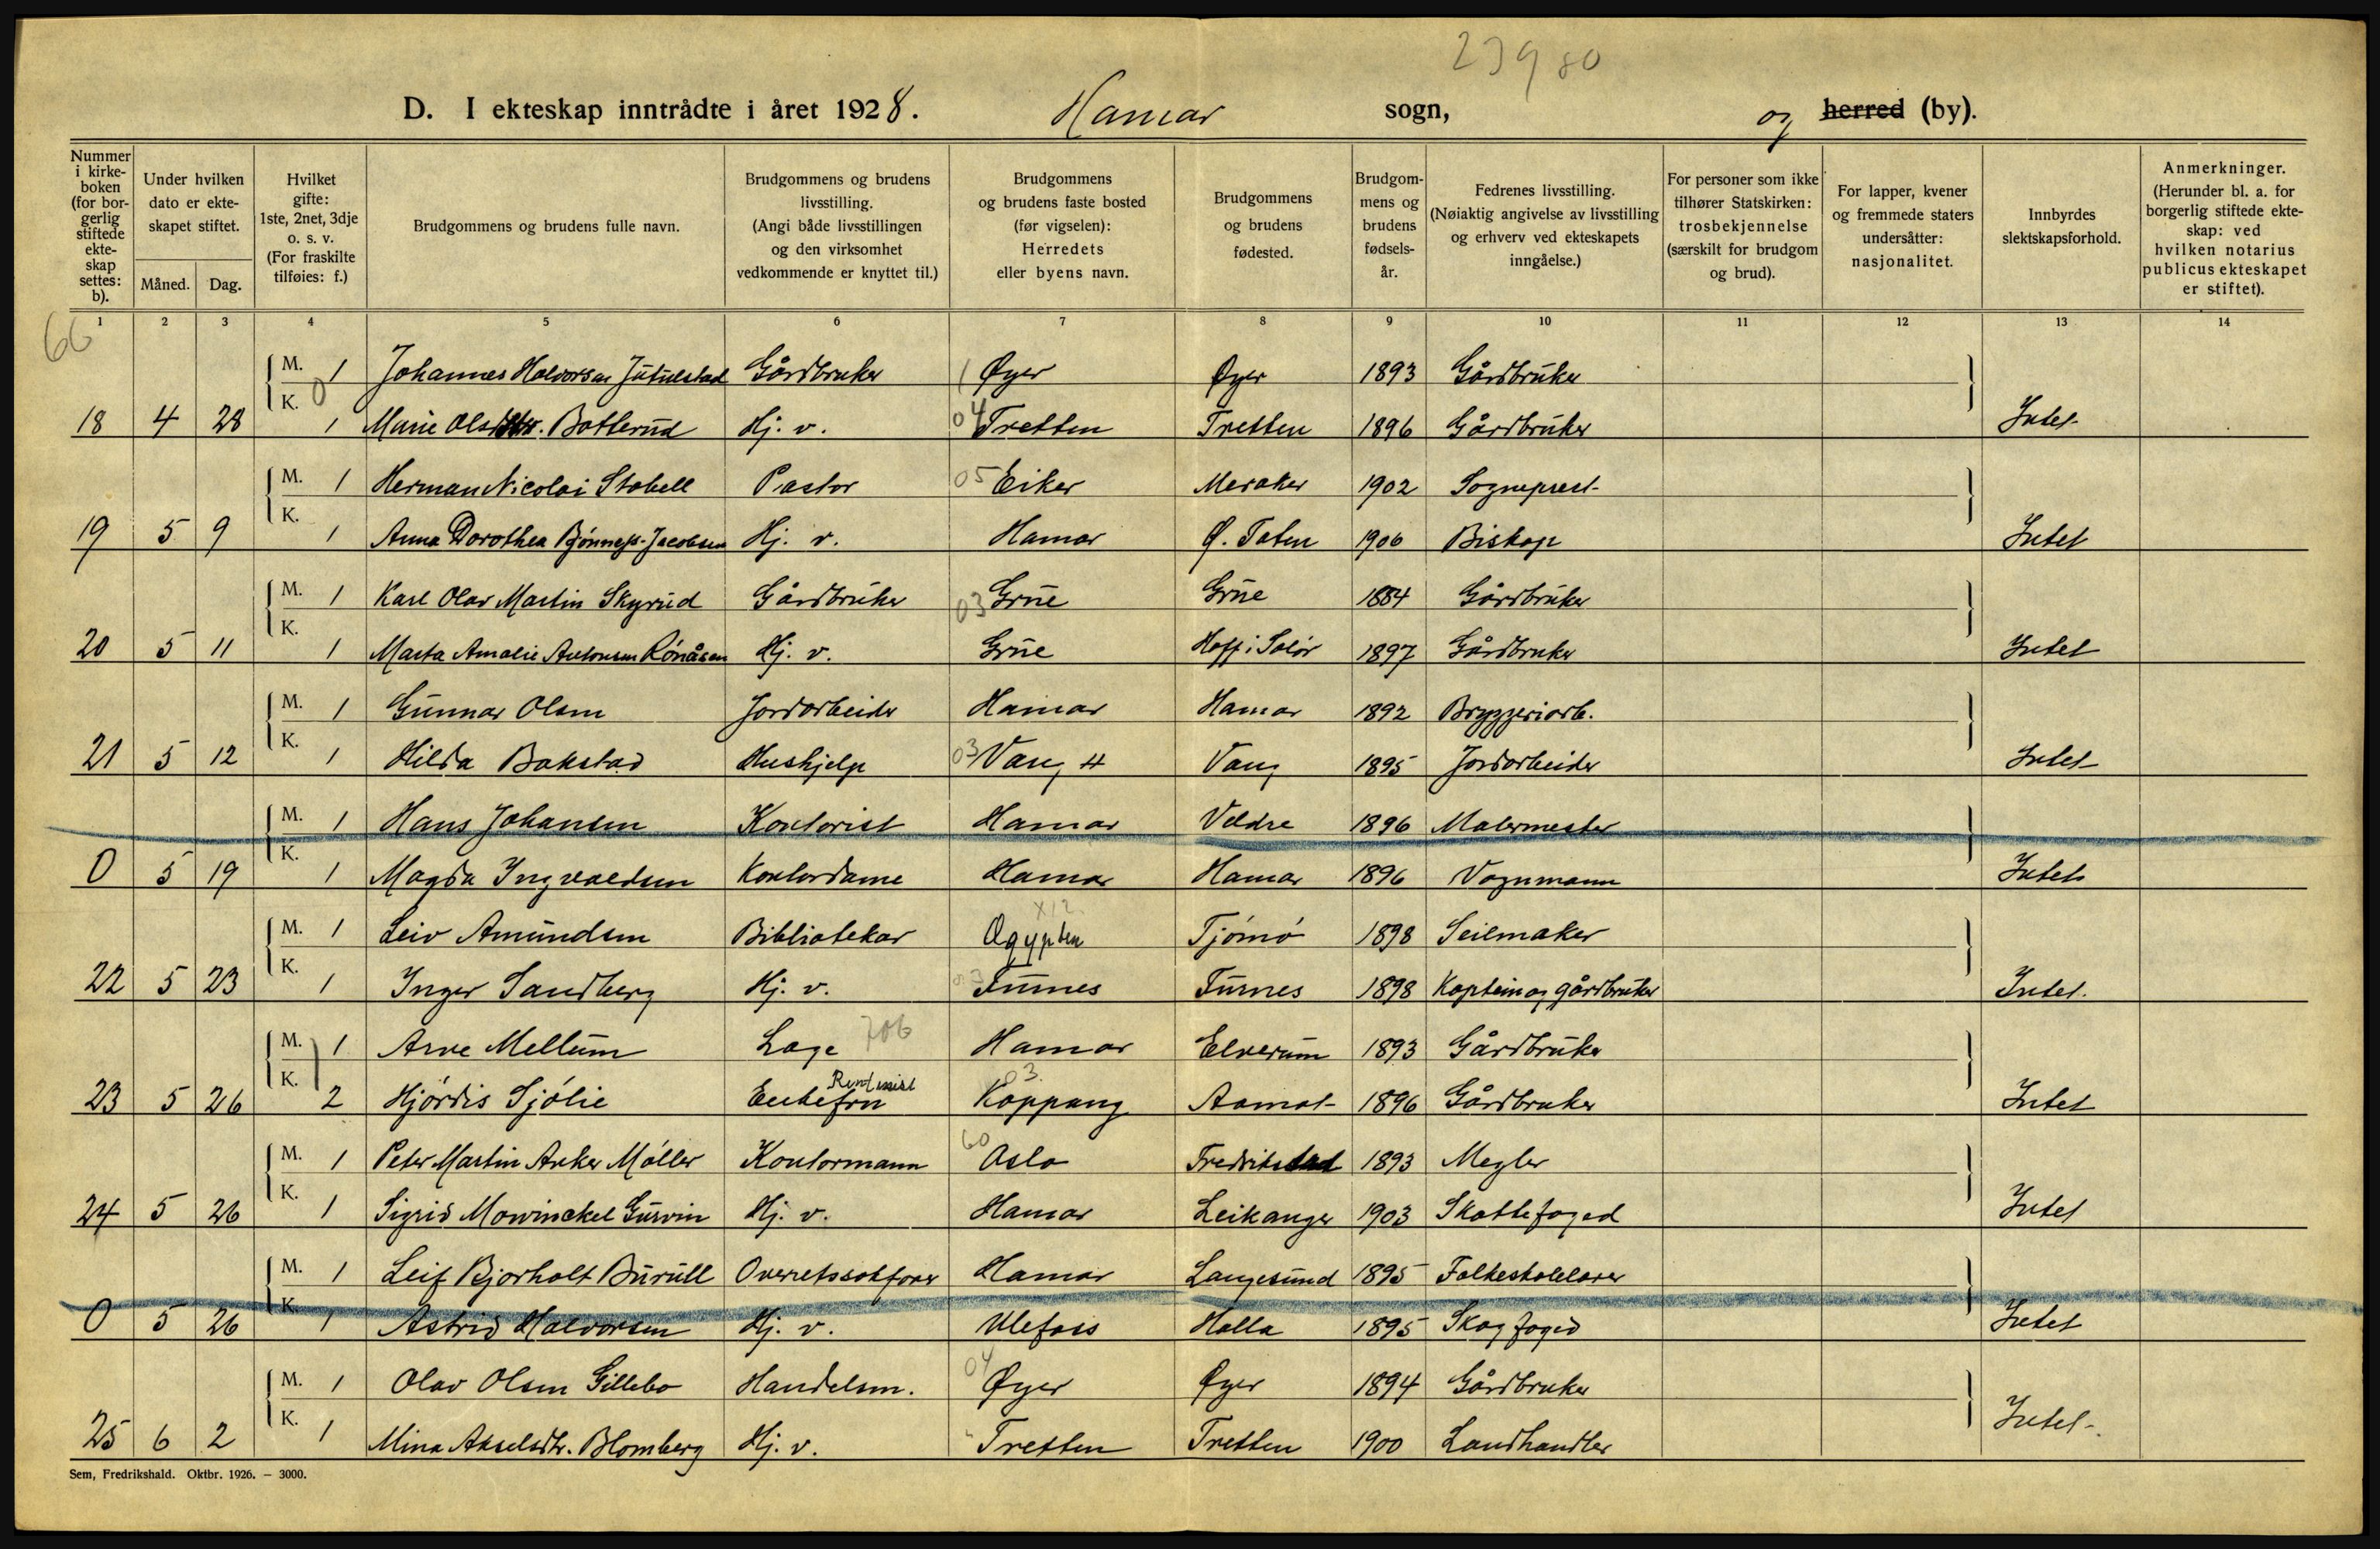 239 80
D. I ekteskap inntrådte i året 1928. Hamar sogn, og herred (by).
Nummer i kirke-boken (for bor-gerlig stiftede ekte-skap settes: b).
Under hvilken dato er ekte-skapet stiftet.
Måned. Dag.
Hvilket gifte: 1ste, 2net, 3dje o. s. v. (For fraskilte tilføies: f.)
Brudgommens og brudens fulle navn.
Brudgommens og brudens livsstilling. (Angi både livsstillingen og den virksomhet vedkommende er knyttet til.)
Brudgommens og brudens faste bosted (før vigselen): Herredets eller byens navn.
Brudgommens og brudens fødested.
Brudgom-mens og brudens fødsels-år.
Fedrenes livsstilling. (Nøiaktig angivelse av livsstilling og erhverv ved ekteskapets inngåelse.)
For personer som ikke tilhører Statskirken: trosbekjennelse (særskilt for brudgom og brud).
For lapper, kvener og fremmede staters undersåtter: nasjonalitet.
Innbyrdes slektskapsforhold.
Anmerkninger. (Herunder bl. a. for borgerlig stiftede ekte-skap: ved hvilken notarius publicus ekteskapet er stiftet).
1 2 3 4 5 6 7 8 9 10 11 12 13 14
66
M. 1 Johannes Halvorsen Jutulstad Gårdbruker Øyer Øyer 1893 Gårdbruker
18 4 28 K. 0 1 Marie Olsdtr. Botterud Hj. v. 04 Tretten Tretten 1896 Gårdbruker Intet
M. 1 Herman Nicolai Stabell Pastor 05 Eiker Meraker 1902 Sogneprest
19 5 9 K. 1 Anna Dorothea Bjønness-Jacobsen Hj. v. Hamar Ø. Toten 1906 Biskop Intet
M. 1 Karl Olav Martin Skyrud Gårdbruker 03 Grue Grue 1884 Gårdbruker
20 5 11 K. 1 Marta Amalie Antonsen Rønåsen Hj. v. Grue Hoff i Solør 1897 Gårdbruker Intet
M. 1 Gunnar Olsen Jordarbeider Hamar Hamar 1892 Bryggeriarb.
21 5 12 K. 1 Hilda Bakstad Hushjelp 03 Vang H Vang 1895 Jordarbeider Intet
M. 1 Hans Johansen Kontorist Hamar Veldre 1896 Malermester
0 5 19 K. 1 Magda Ingvaldsen Kontordame Hamar Hamar 1896 Vognmann Intet
X12
M. 1 Leiv Amundsen Bibliotekar Ægypten Tjømø 1898 Seilmaker
22 5 23 K. 1 Inger Sandberg Hj. v. 03 Furnes Furnes 1898 Kaptein og gårdbruker Intet.
M. 1 Arve Mellum Læge 706 Hamar Elverum 1893 Gårdbruker
Rentenist 03
23 5 26 K. 2 Hjørdis Sjølie Enkefru Koppang Aamot 1896 Gårdbruker Intet
M. 1 Peter Martin Anker Møller Kontormann 60 Oslo Fredrikstad 1893 Megler
24 5 26 K. 1 Sigrid Mowinckel Gurvin Hj. v. Hamar Leikanger 1903 Skattefoged Intet
M. 1 Leif Bjorholt Burull Overretssakfører Hamar Langesund 1895 Folkeskolelærer
0 5 26 K. 1 Astrid Halvorsen Hj. v. Ulefoss Holla 1895 Skogfoged Intet
M. 1 Olav Olsen Gillebo Handelsm. 04 Øyer Øyer 1894 Gårdbruker
25 6 2 K. 1 Mina Akselsdtr. Blomberg Hj. v. Tretten Tretten 1900 Landhandler Intet
Sem, Fredrikshald. Oktbr. 1926. — 3000.